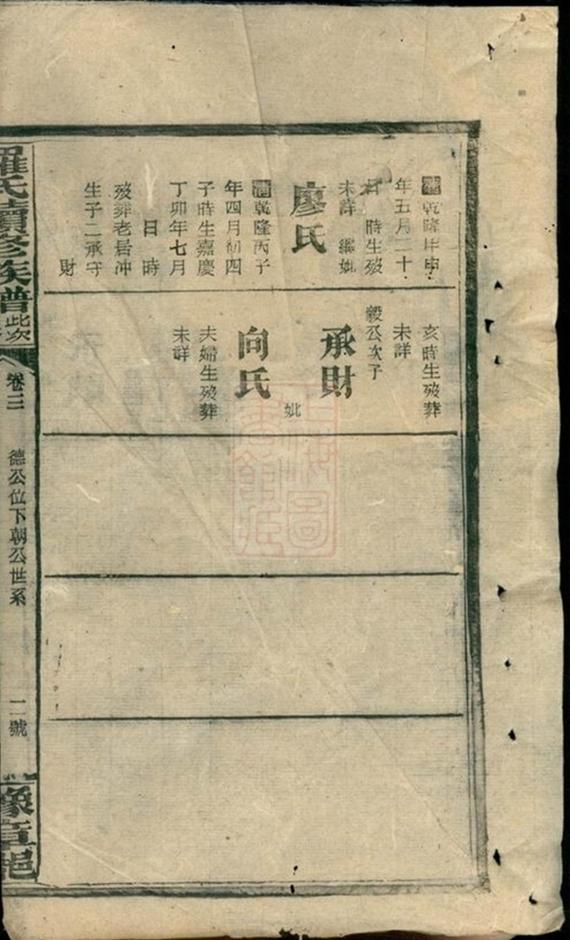 清乾隆甲申
年五月二十
時生殁
未詳 繼妣
廖氏
清乾隆丙子
年四月初四
子時生嘉慶
丁卯年七月
日時
殁葬老居沖
生子二承守
財
亥時生殁葬
未詳
毅公次子
承財
妣
向氏
夫婦生殁葬
未詳
羅氏續修族譜
此次
卷三
德公位下朝公世系
二號
豫章郡